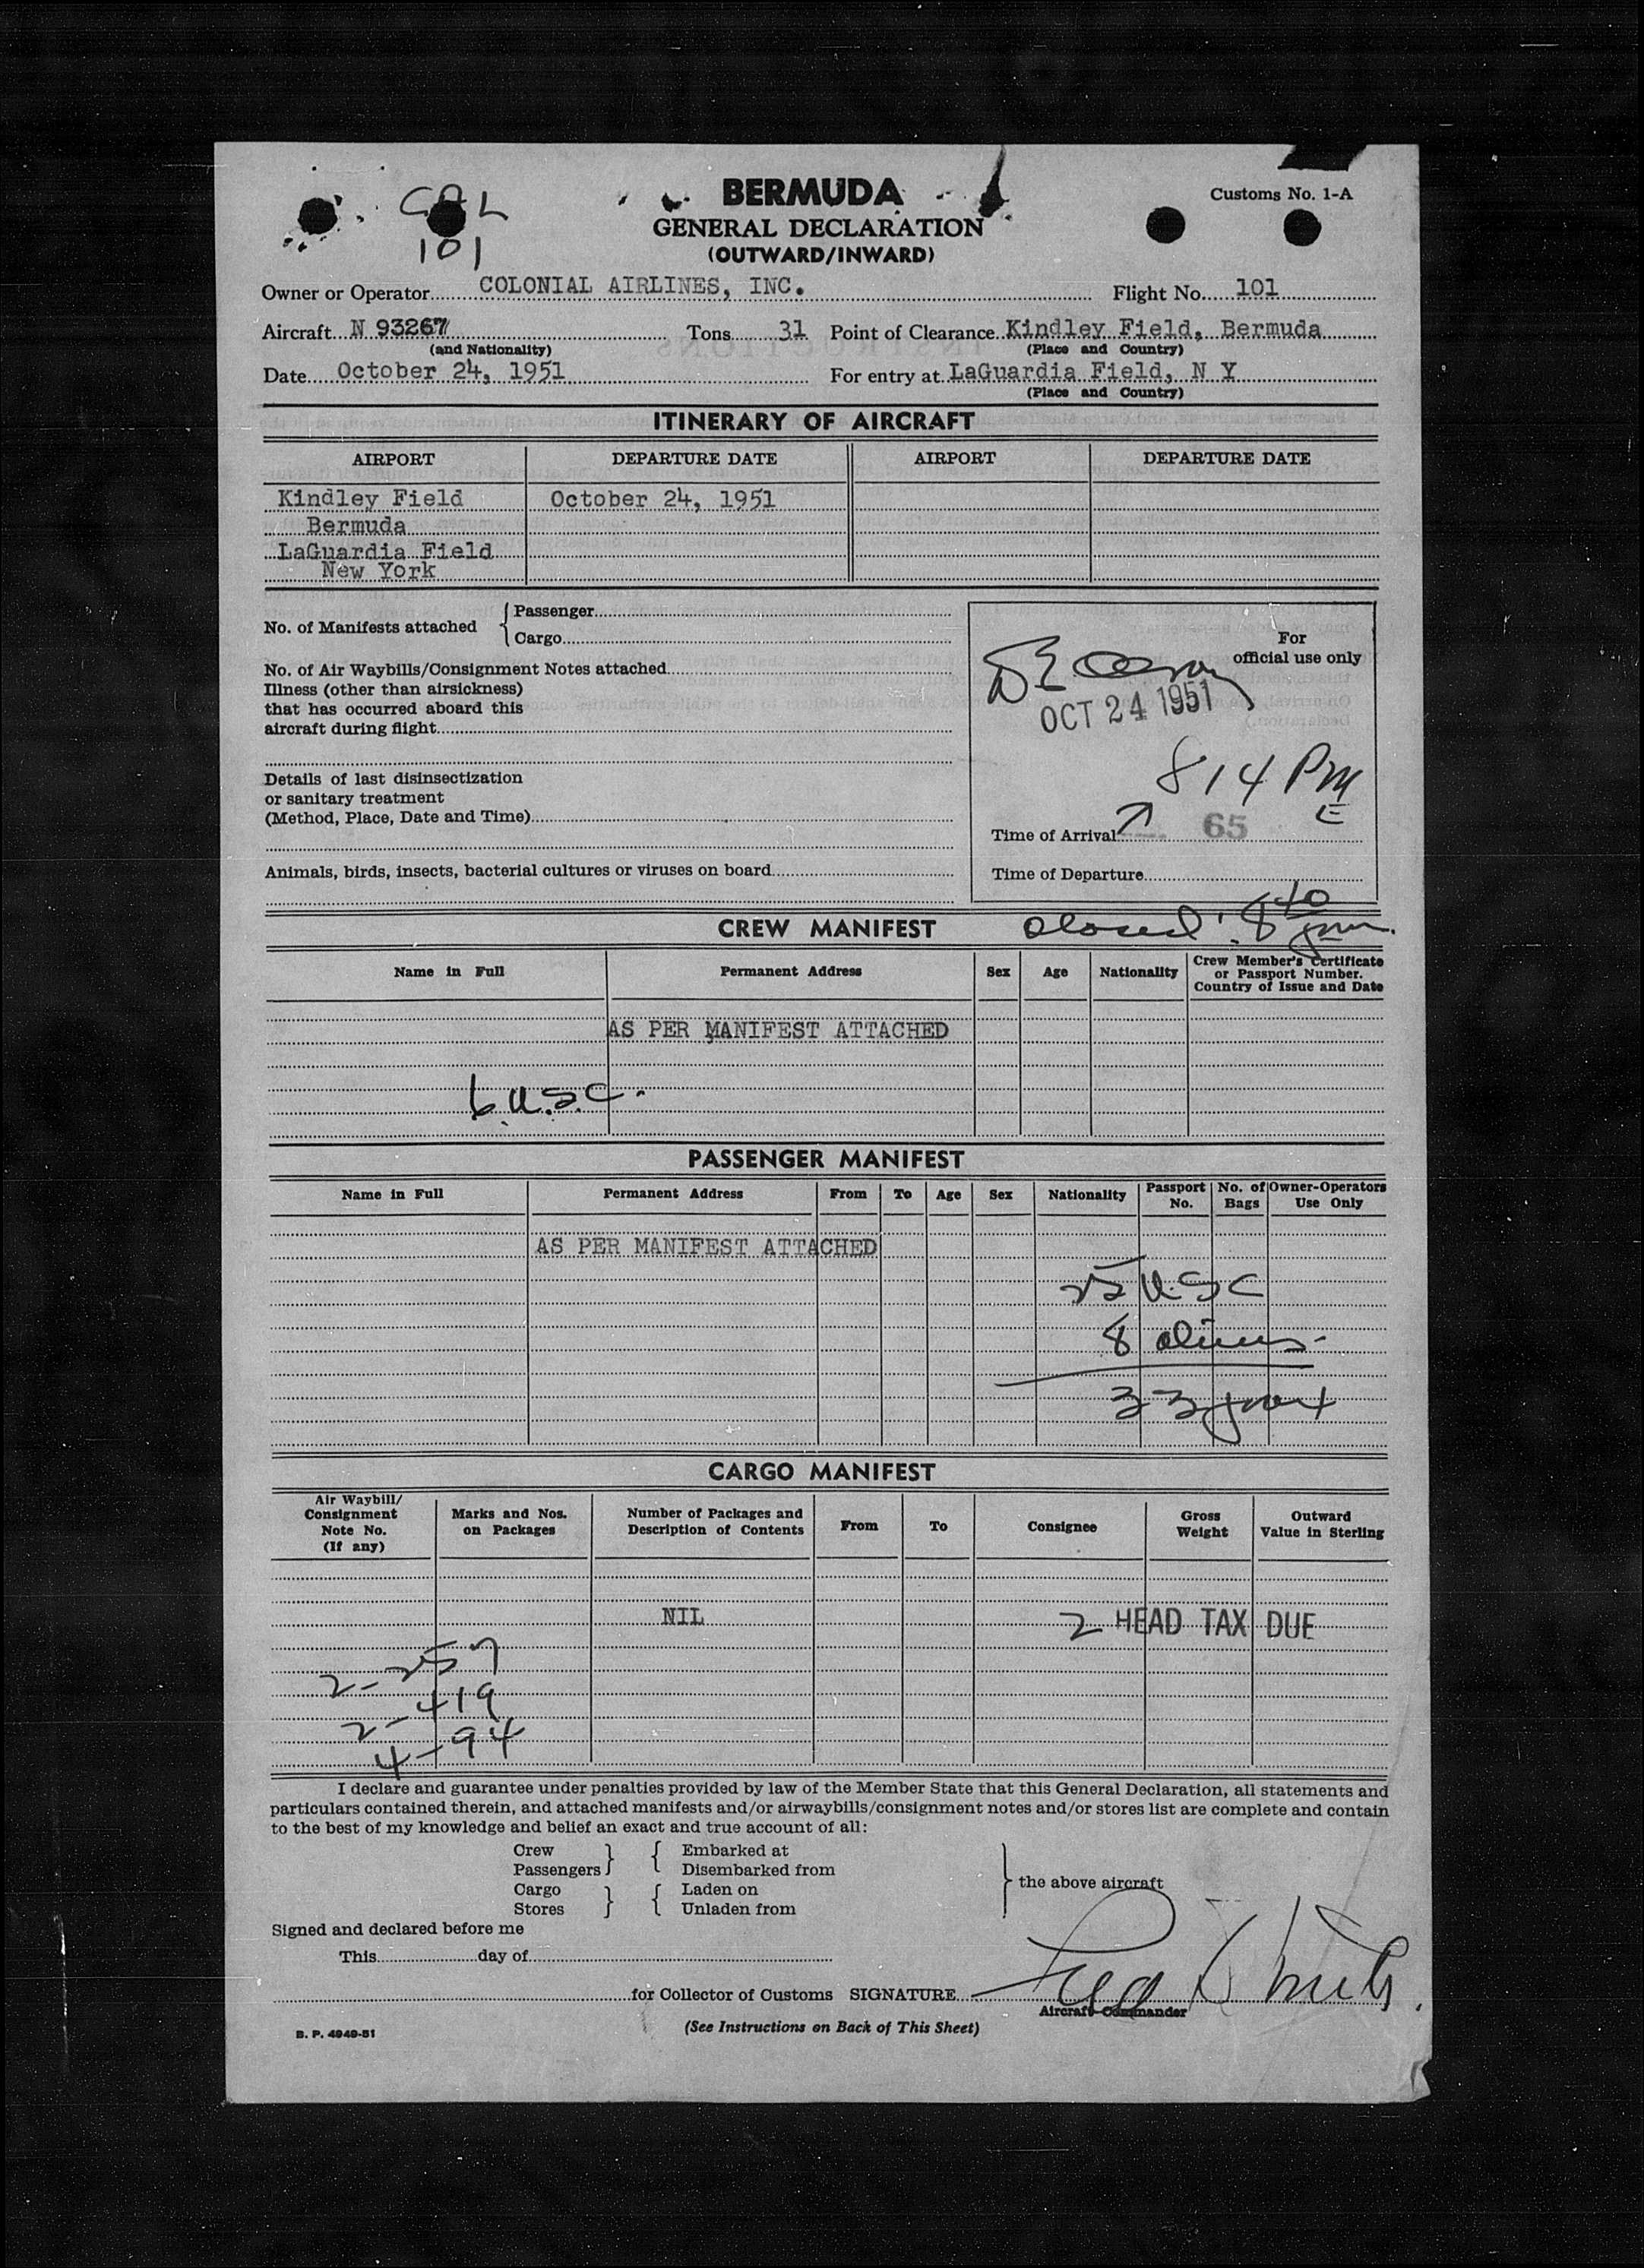 CAL
101
BERMUDA
GENERAL DECLARATION
(OUTWARD/INWARD)
Customs No. 1-A
Owner or Operator COLONIAL AIRLINES, INC. Flight No. 101
Aircraft N 93267 Tons 31 Point of Clearance Kindley Field, Bermuda
(and Nationality) (Place and Country)
Date October 24, 1951 For entry at LaGuardia Field, N Y
(Place and Country)
ITINERARY OF AIRCRAFT
AIRPORT DEPARTURE DATE AIRPORT DEPARTURE DATE
Kindley Field October 24, 1951
Bermuda
LaGuardia Field
New York
No. of Manifests attached { Passenger
Cargo
No. of Air Waybills/Consignment Notes attached
Illness (other than airsickness)
that has occurred aboard this
aircraft during flight
Details of last disinsectization
or sanitary treatment
(Method, Place, Date and Time)
Animals, birds, insects, bacterial cultures or viruses on board
For
official use only
OCT 24 1951
814 PM
E
Time of Arrival 65
Time of Departure
CREW MANIFEST closed 8 40 pm
Name in Full Permanent Address Sex Age Nationality Crew Member's Certificate
or Passport Number.
Country of Issue and Date
AS PER MANIFEST ATTACHED
6 U.S.C.
PASSENGER MANIFEST
Name in Full Permanent Address From To Age Sex Nationality Passport No. No. of Bags Owner-Operators Use Only
AS PER MANIFEST ATTACHED
25 U.S.C
8 aliens
33
CARGO MANIFEST
Air Waybill/
Consignment
Note No.
(If any)
Marks and Nos.
on Packages
Number of Packages and
Description of Contents
From To Consignee
Gross
Weight
Outward
Value in Sterling
NIL 2 HEAD TAX DUE
2-257
2-419
4-94
I declare and guarantee under penalties provided by law of the Member State that this General Declaration, all statements and
particulars contained therein, and attached manifests and/or airwaybills/consignment notes and/or stores list are complete and contain
to the best of my knowledge and belief an exact and true account of all:
Crew } { Embarked at
Passengers Disembarked from
} the above aircraft
Cargo } { Laden on
Stores Unladen from
Signed and declared before me
This day of
for Collector of Customs SIGNATURE
Aircraft Commander
(See Instructions on Back of This Sheet)
B. P. 4949-51